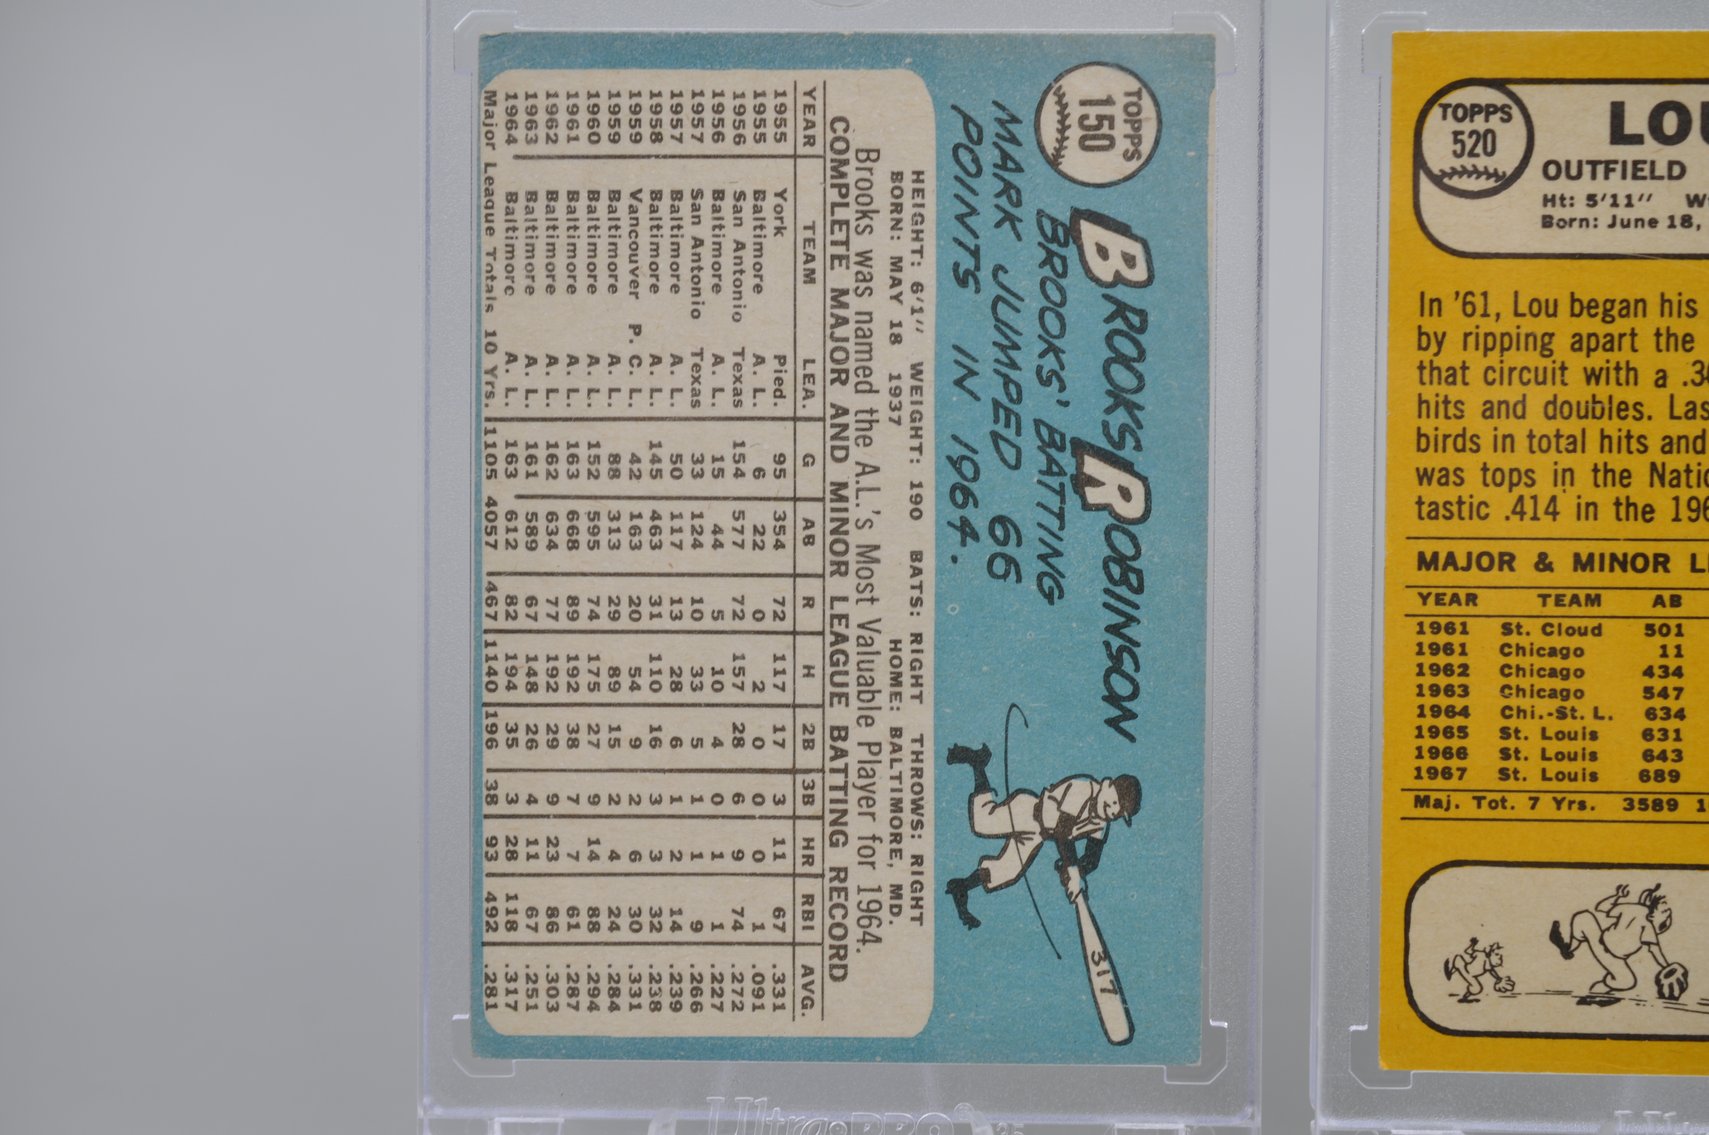 TOPPS
150
BROOKS ROBINSON
BROOKS' BATTING
MARK JUMPED 66
POINTS IN 1964.
317
HEIGHT: 6'1" WEIGHT: 190 BATS: RIGHT THROWS: RIGHT
BORN: MAY 18 1937 HOME: BALTIMORE, MD.
Brooks was named the A.L.'s Most Valuable Player for 1964.
COMPLETE MAJOR AND MINOR LEAGUE BATTING RECORD
YEAR TEAM LEA. G AB R H 2B 3B HR RBI AVG.
1955 York Pied. 95 354 72 117 17 3 11 67 .331
1955 Baltimore A. L. 6 22 0 2 0 0 0 1 .091
1956 San Antonio Texas 154 577 72 157 28 6 9 74 .272
1956 Baltimore A. L. 15 44 5 10 4 0 1 1 .227
1957 San Antonio Texas 33 124 10 33 5 1 1 9 .266
1957 Baltimore A. L. 50 117 13 28 6 1 2 14 .239
1958 Baltimore A. L. 145 463 31 110 16 3 3 32 .238
1959 Vancouver P. C. L. 42 163 20 54 9 2 6 30 .331
1959 Baltimore A. L. 88 313 29 89 15 2 4 24 .284
1960 Baltimore A. L. 152 595 74 175 27 9 14 88 .294
1961 Baltimore A. L. 163 668 89 192 38 7 7 61 .287
1962 Baltimore A. L. 162 634 77 192 29 9 23 86 .303
1963 Baltimore A. L. 161 589 67 148 26 4 11 67 .251
1964 Baltimore A. L. 163 612 82 194 35 3 28 118 .317
Major League Totals 10 Yrs. 1105 4057 467 1140 196 38 93 492 .281
Ultra PRO
TOPPS
520
LOU
OUTFIELD
Ht: 5'11"
Born: June 18,
In '61, Lou began his
by ripping apart the
that circuit with a
hits and doubles.
birds in total hits and
was tops in the
tastic .414 in the
MAJOR & MINOR
YEAR TEAM AB
1961 St. Cloud 501
1961 Chicago 11
1962 Chicago 434
1963 Chicago 547
1964 Chi.-St. L. 634
1965 St. Louis 631
1966 St. Louis 643
1967 St. Louis 689
Maj. Tot. 7 Yrs. 3589